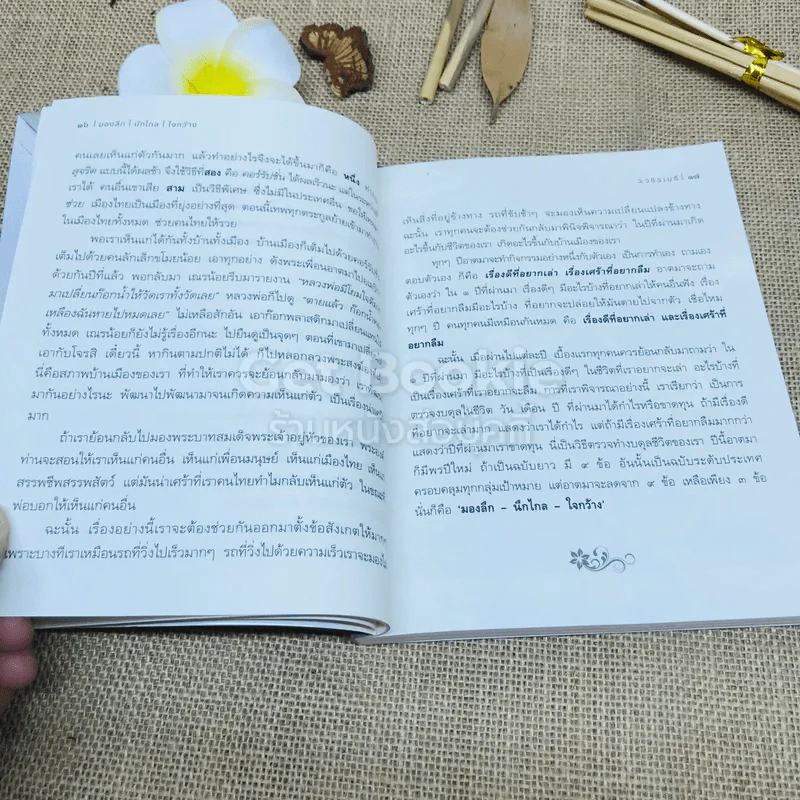 ๑๖ | มองลึก | นึกไกล | ใจกว้าง
คนเลยเห็นแก่ตัวกันมาก แล้วทำอย่างไรจึงจะได้ขึ้นมาก็คือ หนึ่ง
สุจริต แบบนี้ได้ผลช้า จึงใช้วิธีที่สอง คือ คอร์รัปชัน ได้ผลเร็วนะ
เราได้ คนอื่นเขาเสีย สาม เป็นวิธีพิเศษ ซึ่งไม่มีในประเทศอื่น
ช่วย เมืองไทยเป็นเมืองที่ยุ่งอย่างที่สุด ตอนนี้เทพทุกตระกูลย้ายเข้ามา
ในเมืองไทยทั้งหมด ช่วยคนไทยให้รวย
พอเราเห็นแก่ได้กันทั้งบ้านทั้งเมือง บ้านเมืองก็เต็มไปด้วย
เต็มไปด้วยคนลักเล็กขโมยน้อย เอาทุกอย่าง ดังพระเพื่อนอาตมา
ด้วยกันปีที่แล้ว พอกลับมา เณรน้อยรีบมารายงาน "หลวงพ่อมีโยมใจดี
มาเปลี่ยนก๊อกน้ำให้วัดเราทั้งวัดเลย" หลวงพ่อก็ไปดู "ตายแล้ว ก๊อกน้ำ
เหลืองฉันหายไปหมดเลย" ไม่เหลือสักอัน เอาก๊อกพลาสติกมาเปลี่ยน
ทั้งหมด เณรน้อยก็ยังไม่รู้เรื่องอีกนะ ไปยืนดูเป็นจุดๆ ตอนที่เขามาเปลี่ยน
เอากับโจรสิ เดี๋ยวนี้ หากินตามปกติไม่ได้ ก็ไปหลอกลวงพระสงฆ์
นี่คือสภาพบ้านเมืองของเรา ที่ทำให้เราควรจะย้อนกลับมามองว่า
มากันอย่างไรนะ พัฒนาไปพัฒนามาจนเกิดความเห็นแก่ตัว เป็นเรื่อง
มาก
ถ้าเราย้อนกลับไปมองพระบาทสมเด็จพระเจ้าอยู่หัวของเรา
ท่านจะสอนให้เราเห็นแก่คนอื่น เห็นแก่เพื่อนมนุษย์ เห็นแก่เมืองไทย
สรรพชีพสรรพสัตว์ แต่มันน่าเศร้าที่เราคนไทยทำไมกลับเห็นแก่ตัว ในขณะที่
พ่อบอกให้เห็นแก่คนอื่น
ฉะนั้น เรื่องอย่างนี้เราจะต้องช่วยกันออกมาตั้งข้อสังเกตให้มากๆ
เพราะบางทีเราเหมือนรถที่วิ่งไปเร็วมากๆ รถที่วิ่งไปด้วยความเร็วเราจะมองไม่
ว.วชิรเมธี | ๑๗
เห็นสิ่งที่อยู่ข้างทาง รถที่ขับช้าๆ จะมองเห็นความเปลี่ยนแปลงข้างทาง
ฉะนั้น เราทุกคนจะต้องช่วยกันกลับมาพินิจพิจารณาว่า ในปีที่ผ่านมาเกิด
อะไรขึ้นกับชีวิตของเรา เกิดอะไรขึ้นกับบ้านเมืองของเรา
ทุกๆ ปีอาตมาจะทำกิจกรรมอย่างหนึ่งกับตัวเอง เป็นการทำเอง ถามเอง
ตอบตัวเอง ก็คือ เรื่องดีที่อยากเล่า เรื่องเศร้าที่อยากลืม อาตมาจะถาม
ตัวเองว่า ใน ๑ ปีที่ผ่านมา เรื่องดีๆ มีอะไรบ้างที่อยากเล่าให้คนอื่นฟัง เรื่อง
เศร้าที่อยากลืมมีอะไรบ้าง ที่อยากจะปล่อยให้มันตายไปจากตัว เชื่อไหม
ทุกๆ ปี คนทุกคนมีเหมือนกันหมด คือ เรื่องดีที่อยากเล่า และเรื่องเศร้าที่
อยากลืม
ฉะนั้น เมื่อผ่านไปแต่ละปี เบื้องแรกทุกคนควรย้อนกลับมาถามว่า ใน
ปีที่ผ่านมา มีอะไรบ้างที่เป็นเรื่องดีๆ ในชีวิตที่เราอยากจะเล่า อะไรบ้างที่
เป็นเรื่องเศร้าที่เราอยากจะลืม การที่เราพิจารณาอย่างนี้ เราเรียกว่า เป็นการ
ตรวจงบดุลในชีวิต วัน เดือน ปี ที่ผ่านมาได้กำไรหรือขาดทุน ถ้ามีเรื่องดี
ที่อยากจะเล่ามาก แสดงว่าเราได้กำไร แต่ถ้ามีเรื่องเศร้าที่อยากลืมมากกว่า
แสดงว่าปีที่ผ่านมาเราขาดทุน นี่เป็นวิธีตรวจทำงบดุลชีวิตของเรา ปีนี้อาตมา
ก็มีพรปีใหม่ ถ้าเป็นฉบับยาว มี ๙ ข้อ อันนั้นเป็นฉบับระดับประเทศ
ครอบคลุมทุกกลุ่มเป้าหมาย แต่อาตมาจะลดจาก ๙ ข้อ เหลือเพียง ๓ ข้อ
นั่นก็คือ 'มองลึก - นึกไกล - ใจกว้าง'
Got Bookie
ร้านหนังสือ